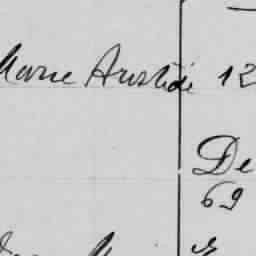 Marie Aristide 12
De
69